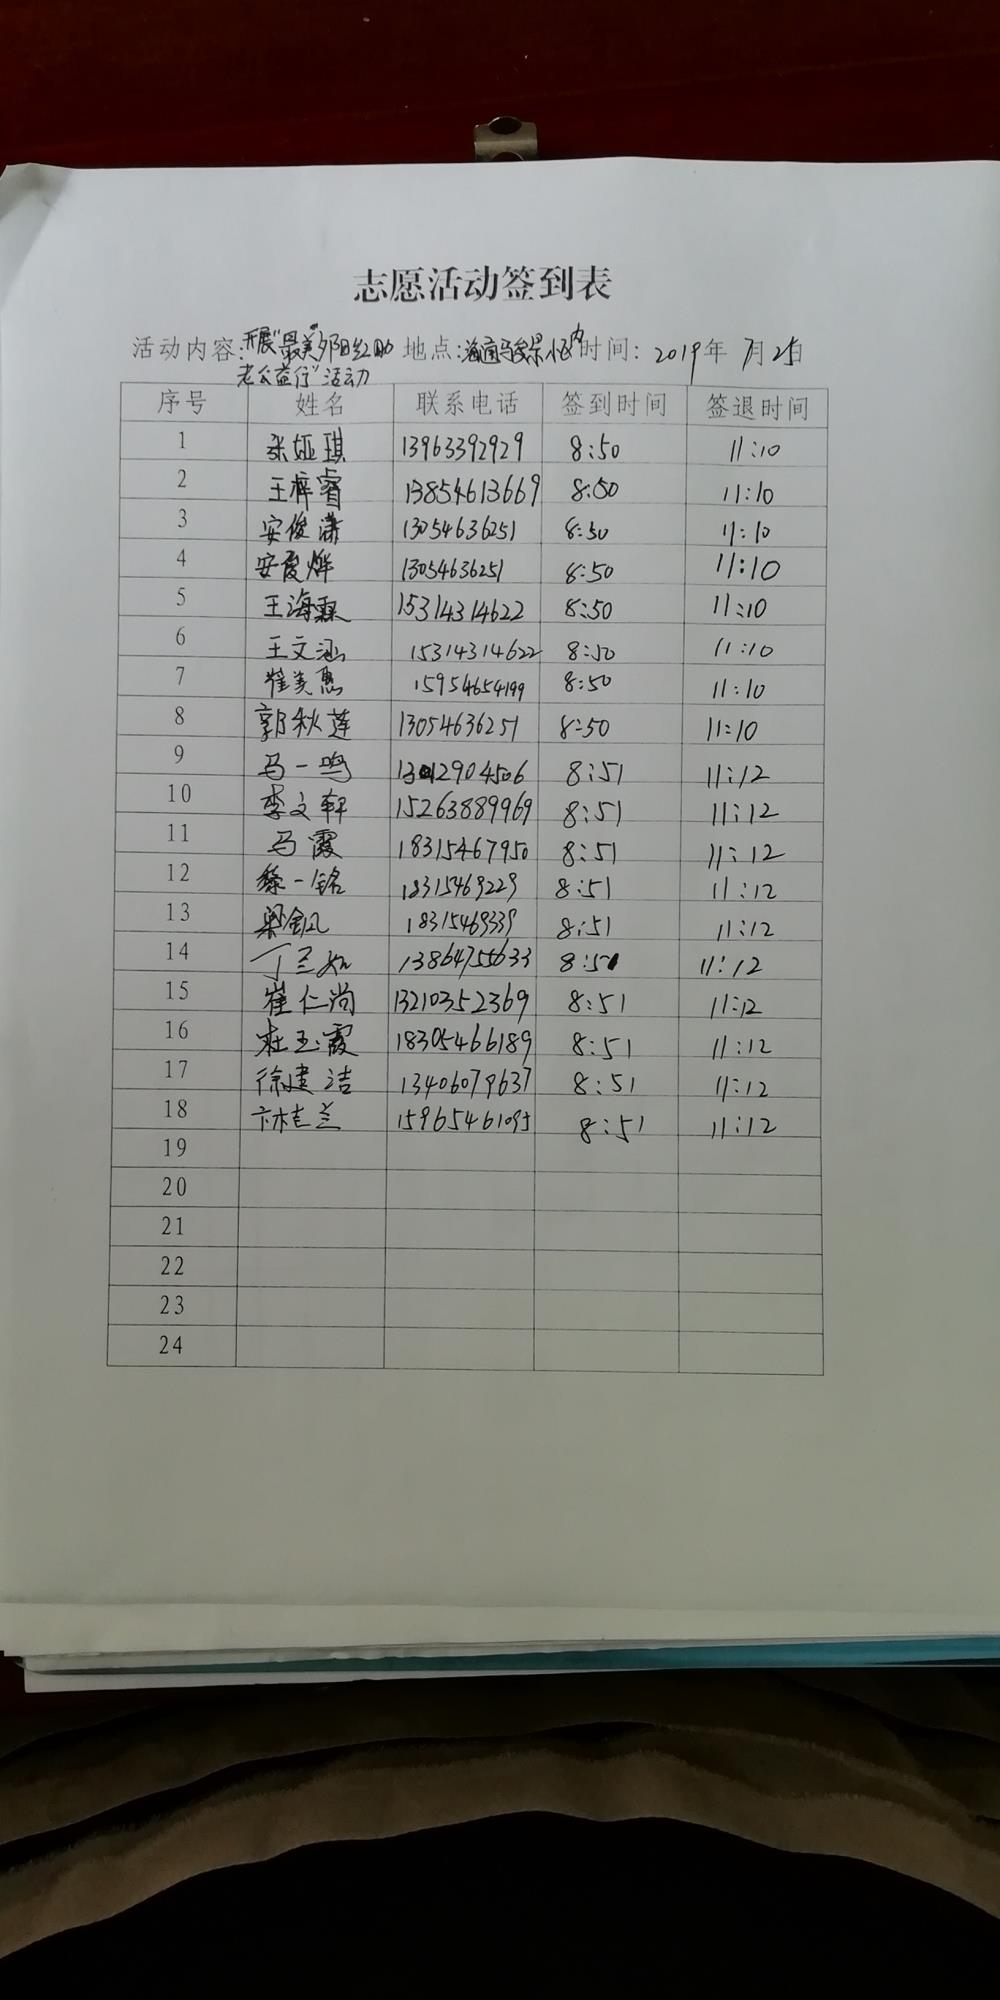 志愿活动签到表
活动内容:开展"最美夕阳红助 地点:海通马 景小区内 时间: 2019年 7月25日
老公益行"活动
序号 姓名 联系电话 签到时间 签退时间
1 张娅琪 13963392929 8:50 11:10
2 王梓睿 13854613669 8:50 11:10
3 安俊潇 13054636251 8:50 11:10
4 安夏烨 13054636251 8:50 11:10
5 王海霖 15314314622 8:50 11:10
6 王文涵 15314314622 8:50 11:10
7 崔美惠 15954654199 8:50 11:10
8 郭秋莲 13054636251 8:50 11:10
9 马一鸣 13012904506 8:51 11:12
10 李文轩 15263889969 8:51 11:12
11 马霞 18315467950 8:51 11:12
12 一铭 18315469229 8:51 11:12
13 梁金凤 18315469339 8:51 11:12
14 丁兰如 13864755633 8:51 11:12
15 崔仁尚 13210352369 8:51 11:12
16 杜玉霞 18305466189 8:51 11:12
17 徐建洁 13406079637 8:51 11:12
18 卞桂兰 15965461095 8:51 11:12
19
20
21
22
23
24